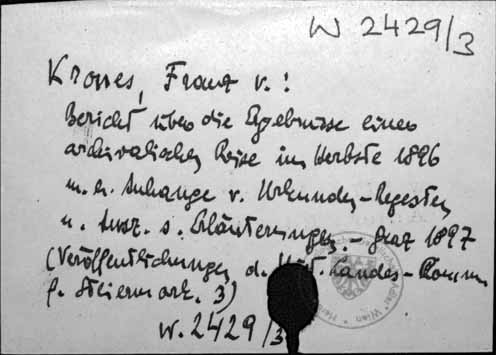 W 2429/3
Krones, Franz v.:
Bericht über die Ergebnisse einer
archivalischen Reise im Herbste 1896
m. e. Anhange v. Urkunden-Regesten
u. Ausz. s. Erläuterungen. - Graz 1897
(Veröffentlichungen d. Hist. Landes-Komm.
f. Steiermark. 3)
W. 2429/3